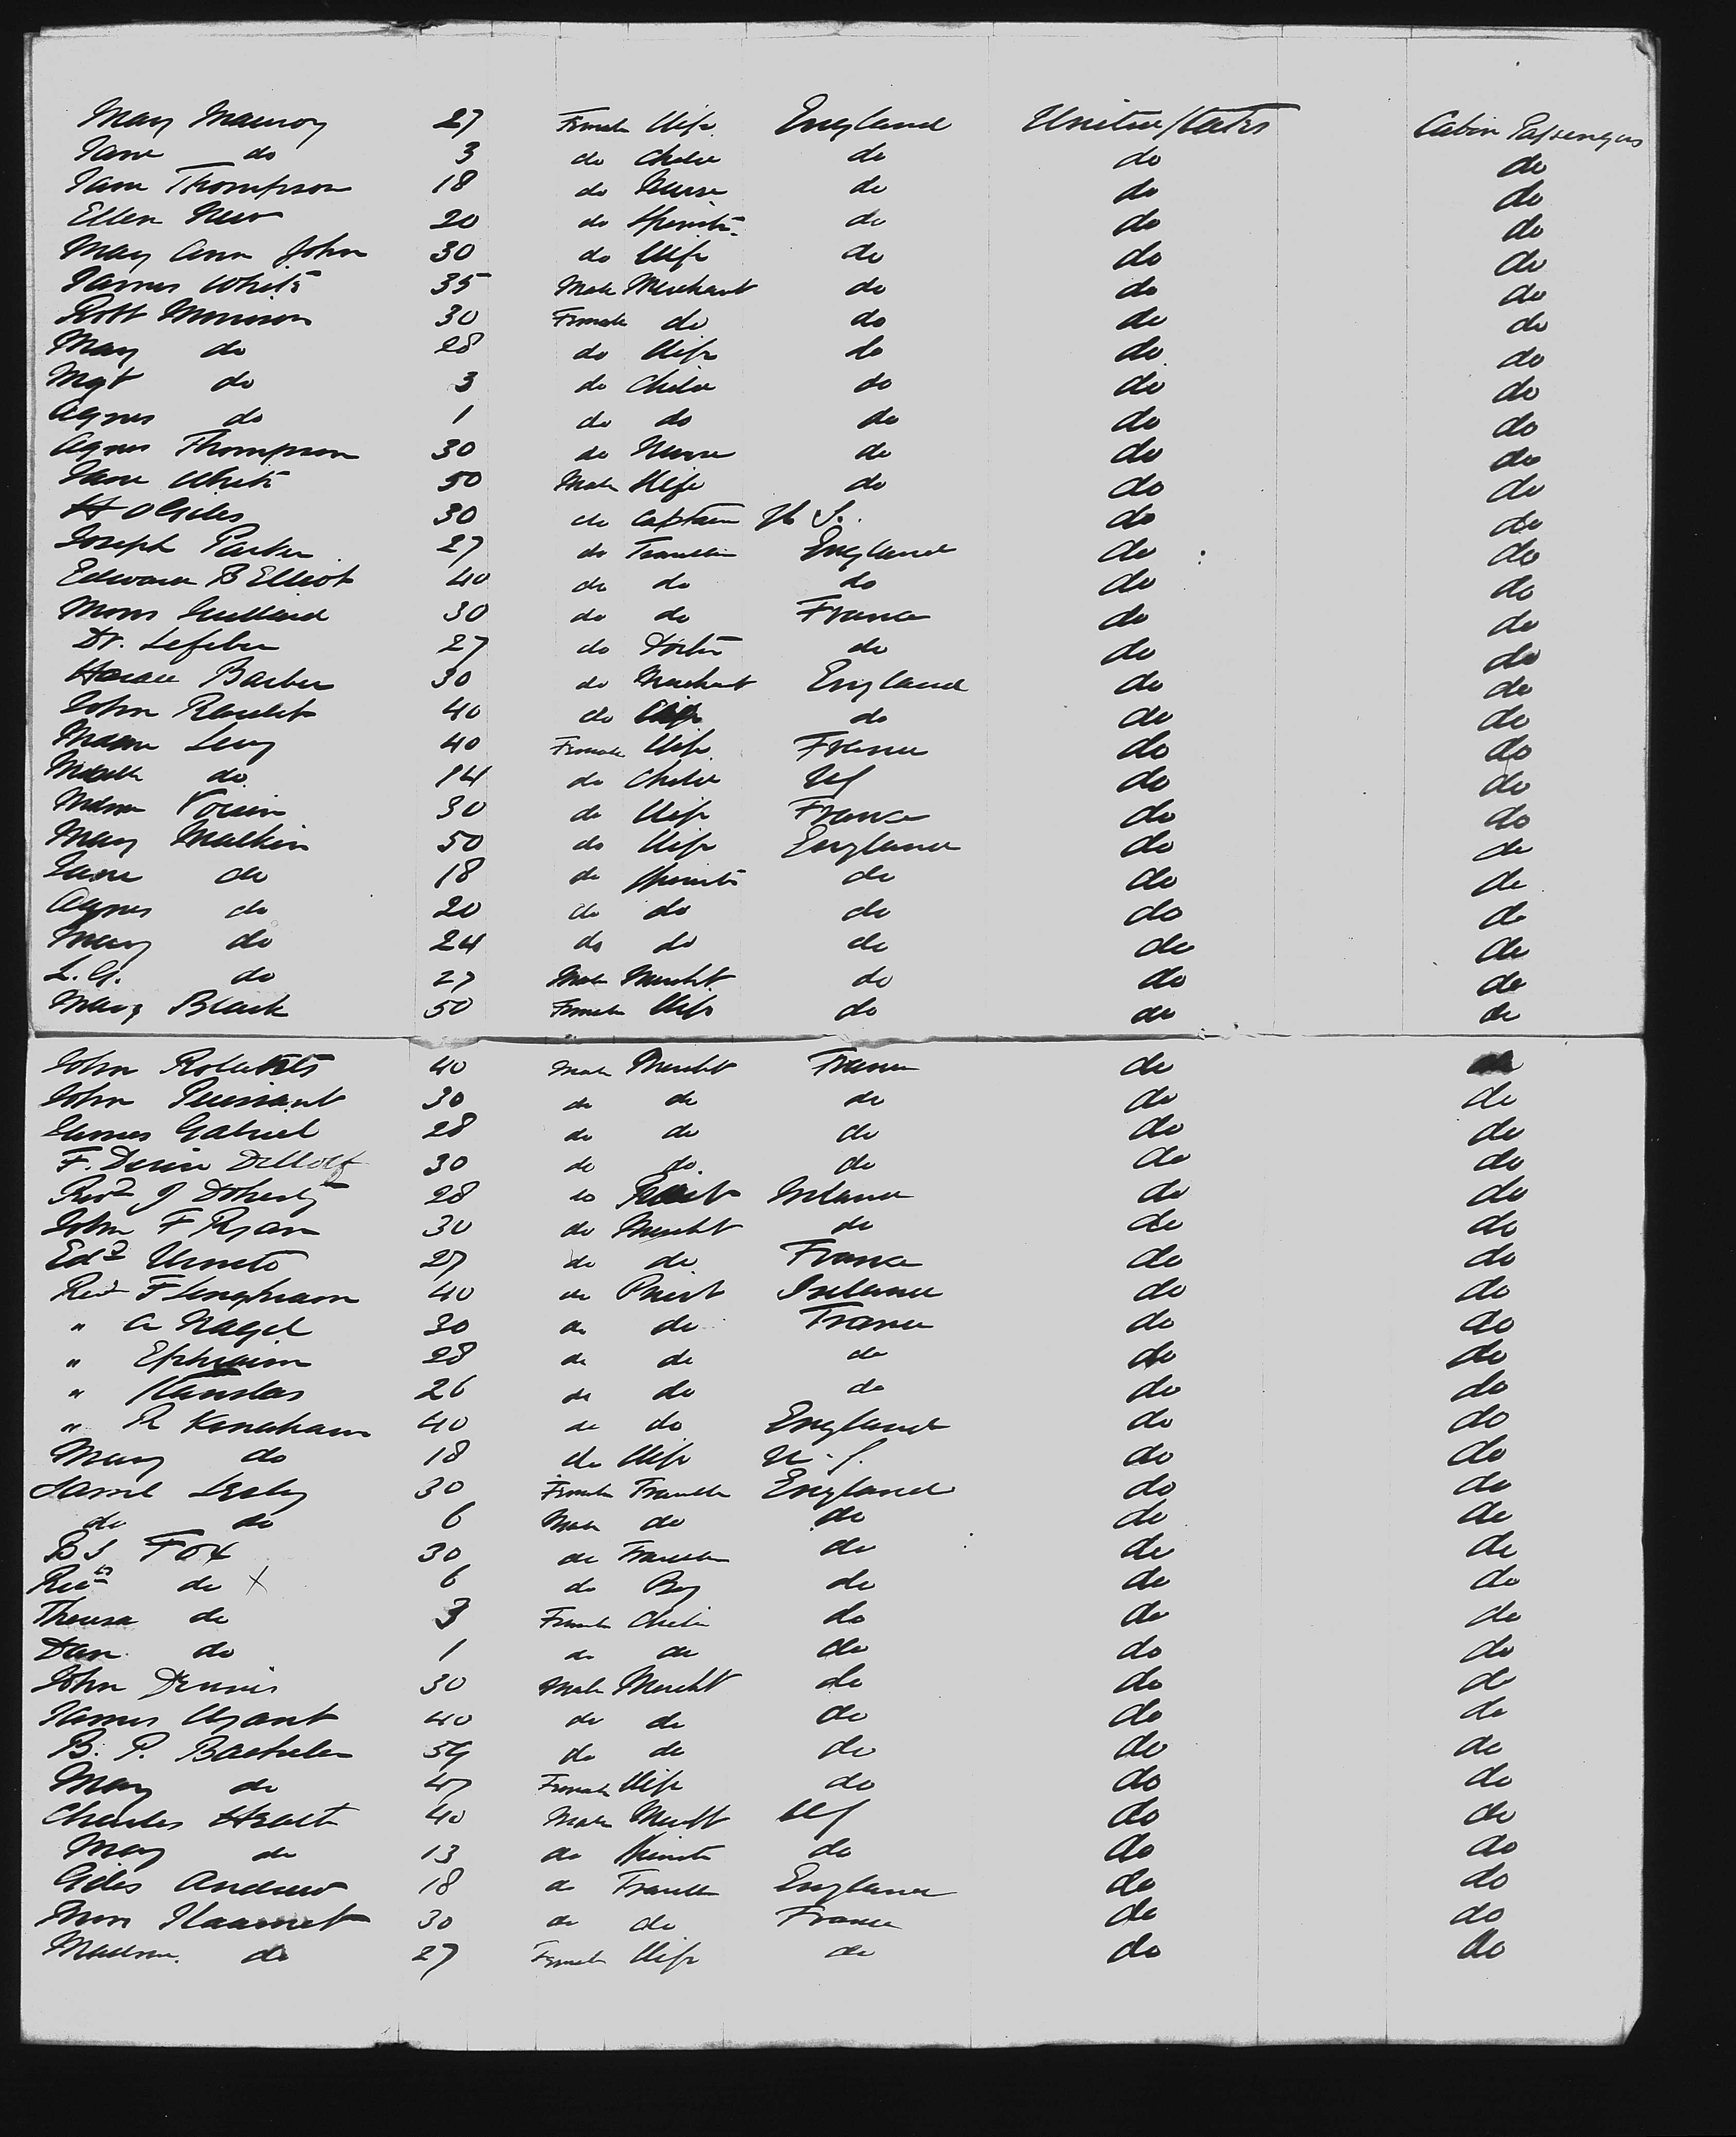 Mary Mauroy 27 Female Wife England United States Cabin Passengers
Jane do 3 do Child do do do
Jane Thompson 18 do Nurse do do do
Ellen New 20 do Spinstr do do do
Mary Ann John 30 do Wife do do do
James White 35 Male Merchant do do do
Robt Morrison 30 Female do do do do
Mary do 28 do Wife do do do
Mgt do 3 do Child do do do
Agnes do 1 do do do do do
Agnes Thompson 30 do Nurse do do do
Jane White 50 Male Wife do do do
H O Giles 30 do Captain U S. do do
Joseph Parker 27 do Traveller England do do
Edward B Elliot 40 do do do do do
Mons 30 do do France do do
Dr. Lefeber 27 do Doctor do do do
Horace Barber 30 do Merchant England do do
John 40 do do do do
Madm Levy 40 Female Wife France do do
do 14 do Child US do do
Madm 30 do Wife France do do
Mary Malkin 50 do Wife England do do
Jane do 18 do Spinstr do do do
Agnes do 20 do do do do do
Mary do 24 do do do do do
L. G. do 27 Male Mercht do do do
Mary Black 50 Female Wife do do do
John Roberts 40 Male Mercht France do do
John Puissant 30 do do do do do
James Gabriel 28 do do do do do
F. 30 do do do do do
Revd J Doherty 28 do Priest Ireland do do
John F Ryan 30 do Mercht do do do
Edd 27 do do France do do
Revd 40 do Priest Ireland do do
" A Nagel 30 do do France do do
" Ephraim 28 do do do do do
" 26 do do do do do
" R Kenaham 40 do do England do do
Mary do 18 do Wife U.S. do do
Saml Lesly 30 Female Traveller England do do
do do 6 Male do do do do
B S Fox 30 do Traveller do do do
do X 6 do Boy do do do
Theresa do 3 Female Child do do do
Dan do 1 do do do do do
John Dennis 30 Male Mercht do do do
James 40 do do do do do
B. P. Bachelor 59 do do do do do
Mary do 47 Female Wife do do do
Charles 40 Male Mercht US do do
Mary do 13 do Spinstr do do do
Giles Andrew 18 do Traveller England do do
Mons 30 do do France do do
Madm. do 27 Female Wife do do do